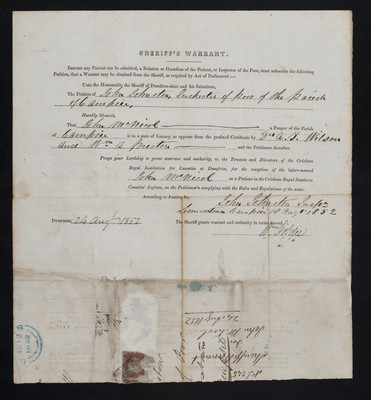 SHERIFF'S WARRANT.
BEFORE any Patient can be admitted, a Relation or Guardian of the Patient, or Inspector of the Poor, must subscribe the following
Petition, that a Warrant may be obtained from the Sheriff, as required by Act of Parliament :—
Unto the Honourable the Sheriff of Dumfries-shire and his Substitute,
The Petition of John Johnston, Inspector of poor of the parish
of Campsie,
Humbly Sheweth,
That John McNicol a Pauper of the Parish
of Campsie is in a state of Lunacy, as appears from the prefixed Certificate by Drs A. F. Wilson
and Wm A. and the Petitioner therefore
Prays your Lordship to grant warrant and authority, to the Trustees and Directors of the Crichton
Royal Institution for Lunatics at Dumfries, for the reception of the before-named
John McNicol as a Patient in the Crichton Royal Southern
Counties' Asylum, on the Petitioner's complying with the Rules and Regulations of the same.
According to Justice, &c.
John Johnston Inspr
Lennoxtown Campsie 10 Augt 1852
DUMFRIES, 24 Augt 1852 The Sheriff grants warrant and authority in terms
Sheriff's Warrant
for
John McNicol
24 Augt 1852